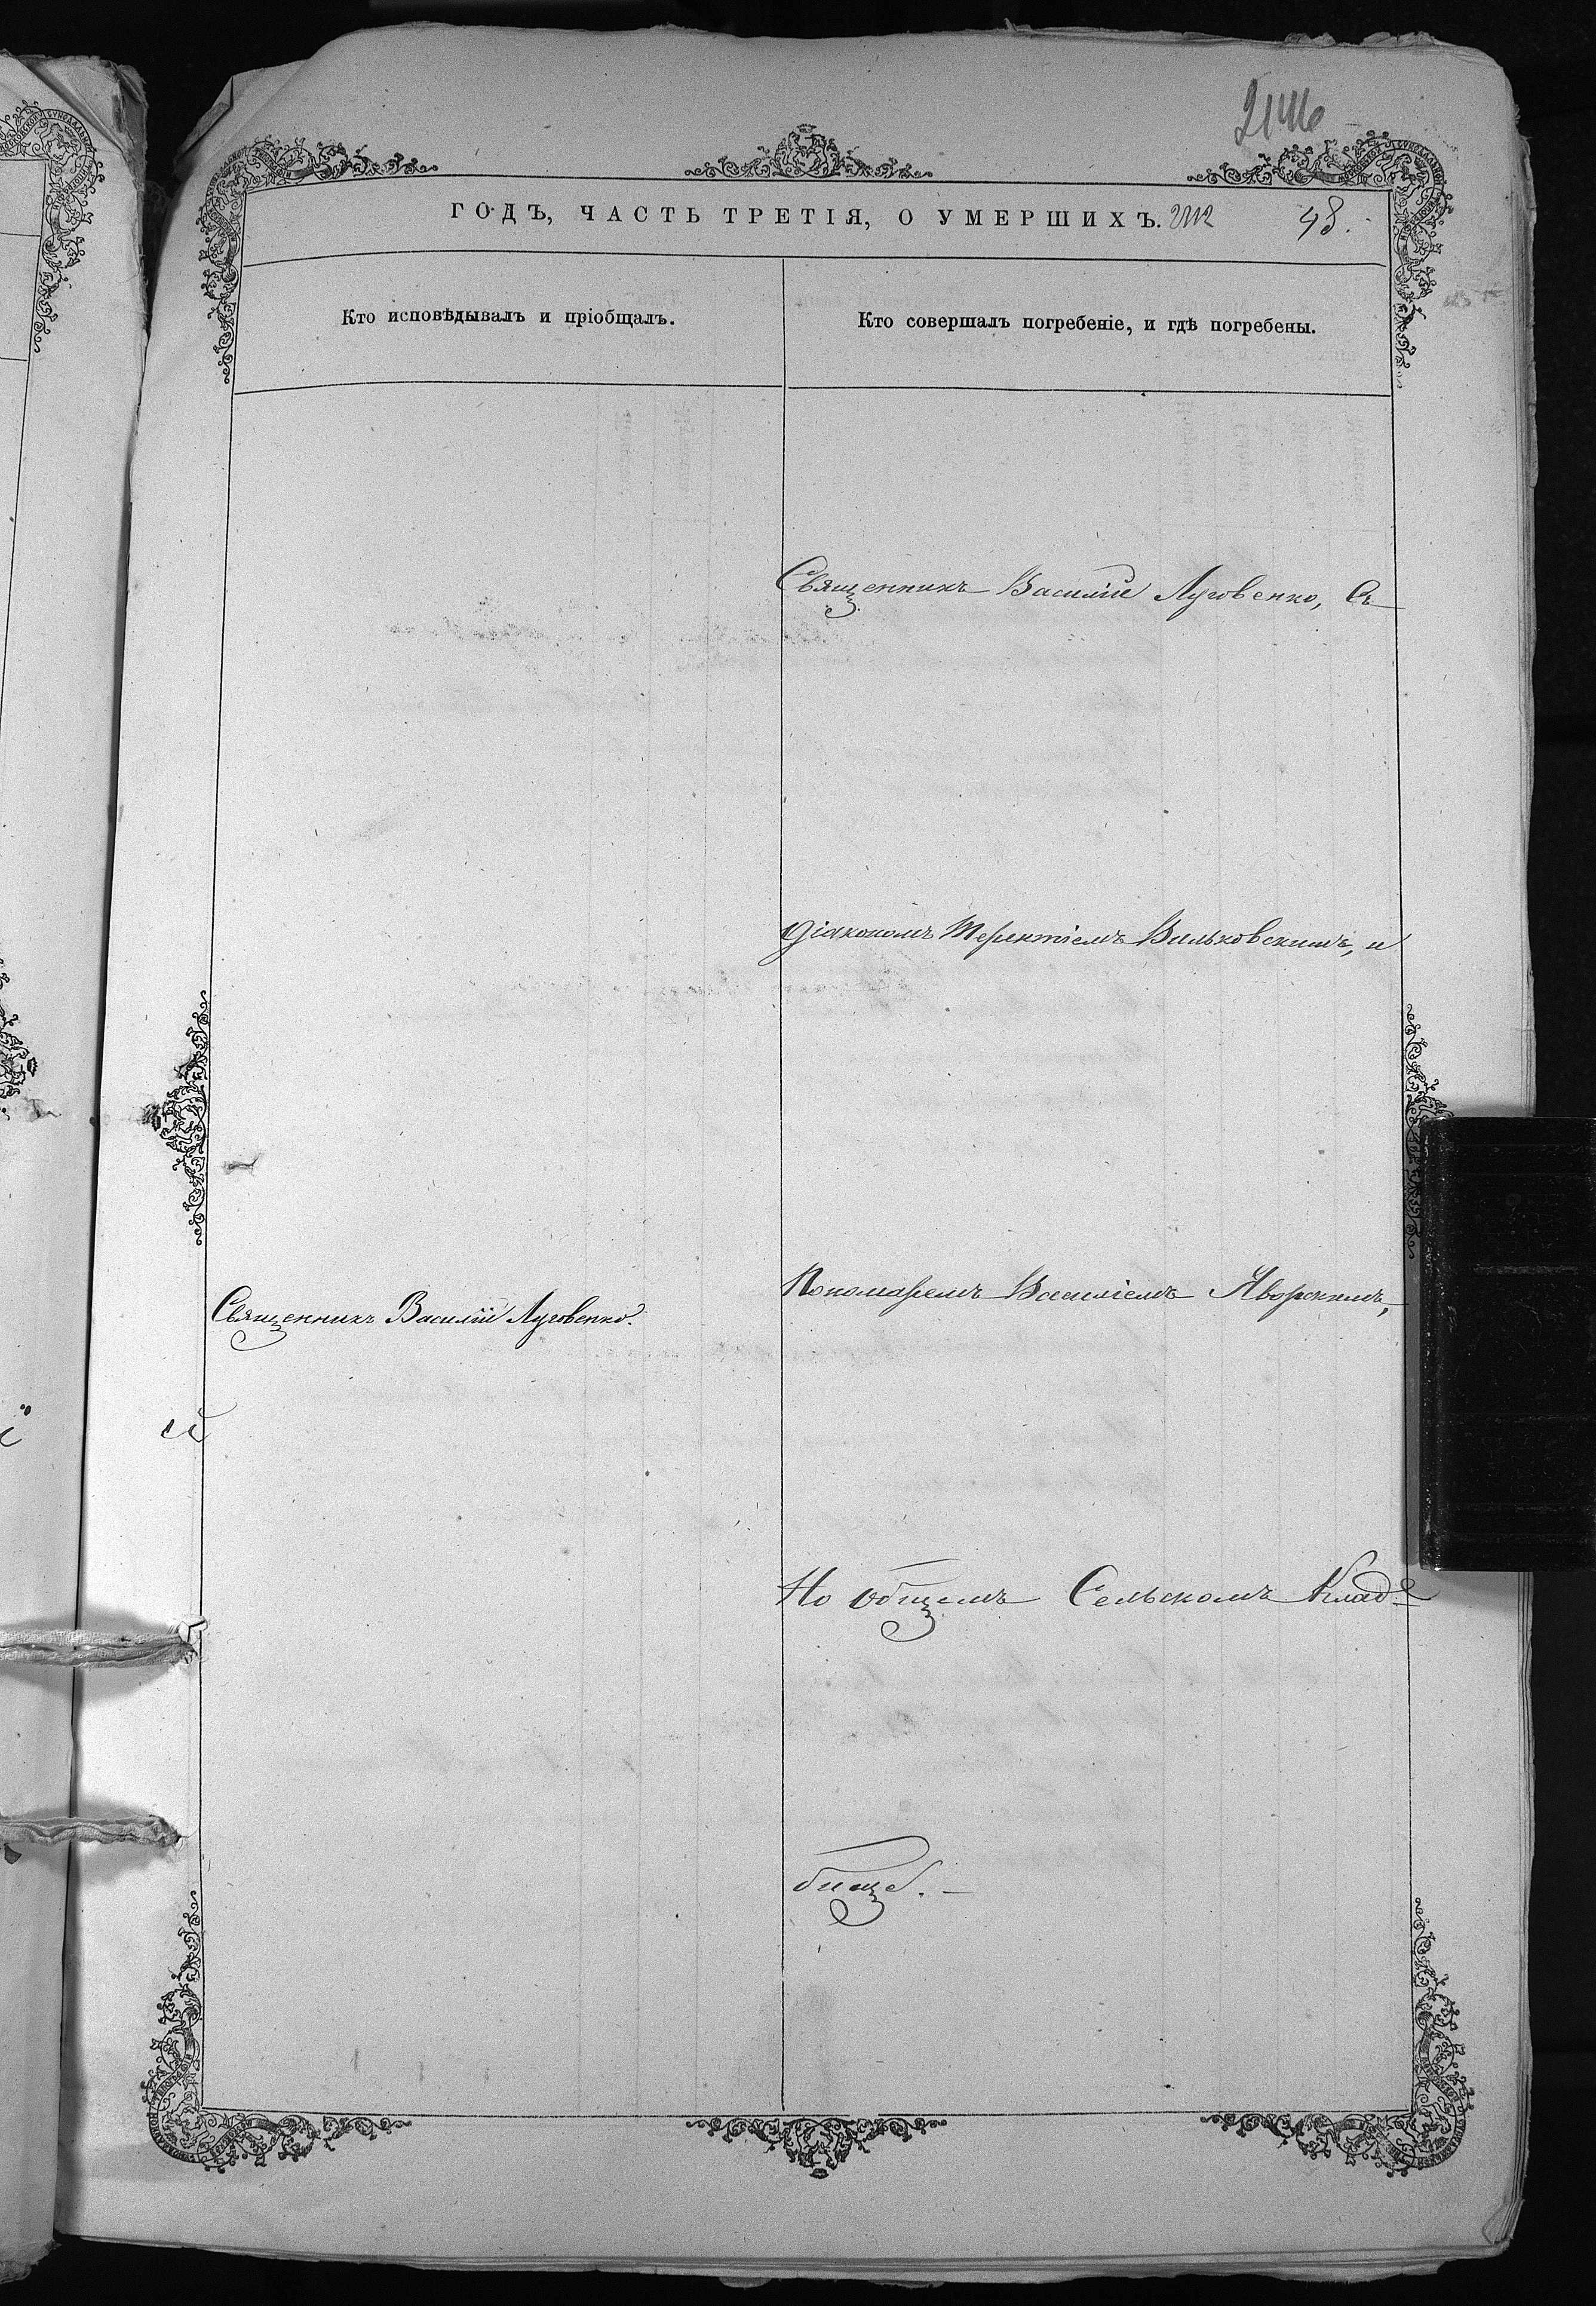 2146
ГОДЪ, ЧАСТЬ ТРЕТІЯ, О УМЕРШИХЪ.
48.
Кто исповѣдывалъ и пріобщалъ.
Кто совершалъ погребеніе, и гдѣ погребены.
Священникъ Василій Луговенко, Съ
Діакономъ Терентіемъ Вильковскимъ, и
Пономаремъ Василіемъ Яворскимъ,
Священникъ Василій Луговенко.
й
На общемъ Сельскомъ Клад-
бищѣ. —